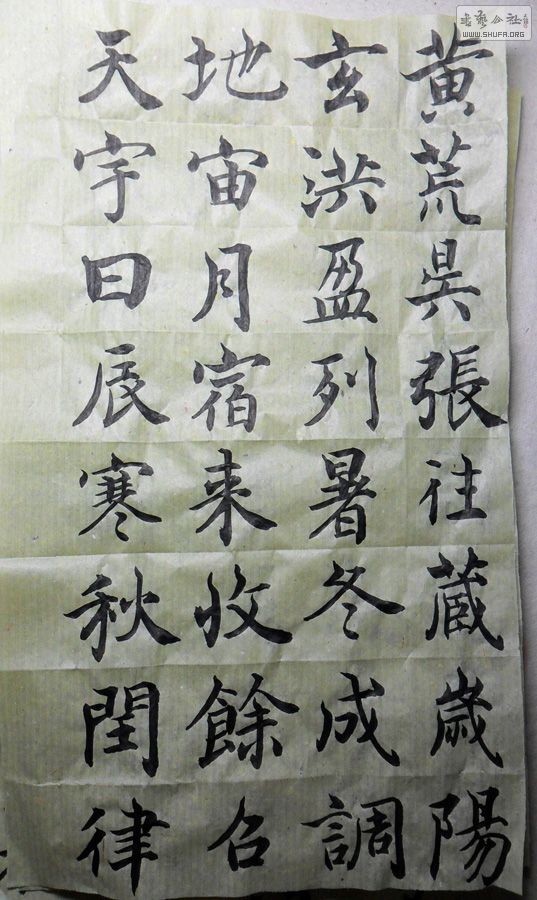 書藝公社
WWW.SHUFA.ORG
天地玄黄
宇宙洪荒
日月盈昃
辰宿列張
寒来暑往
秋收冬蔵
閏餘成歲
律召調陽